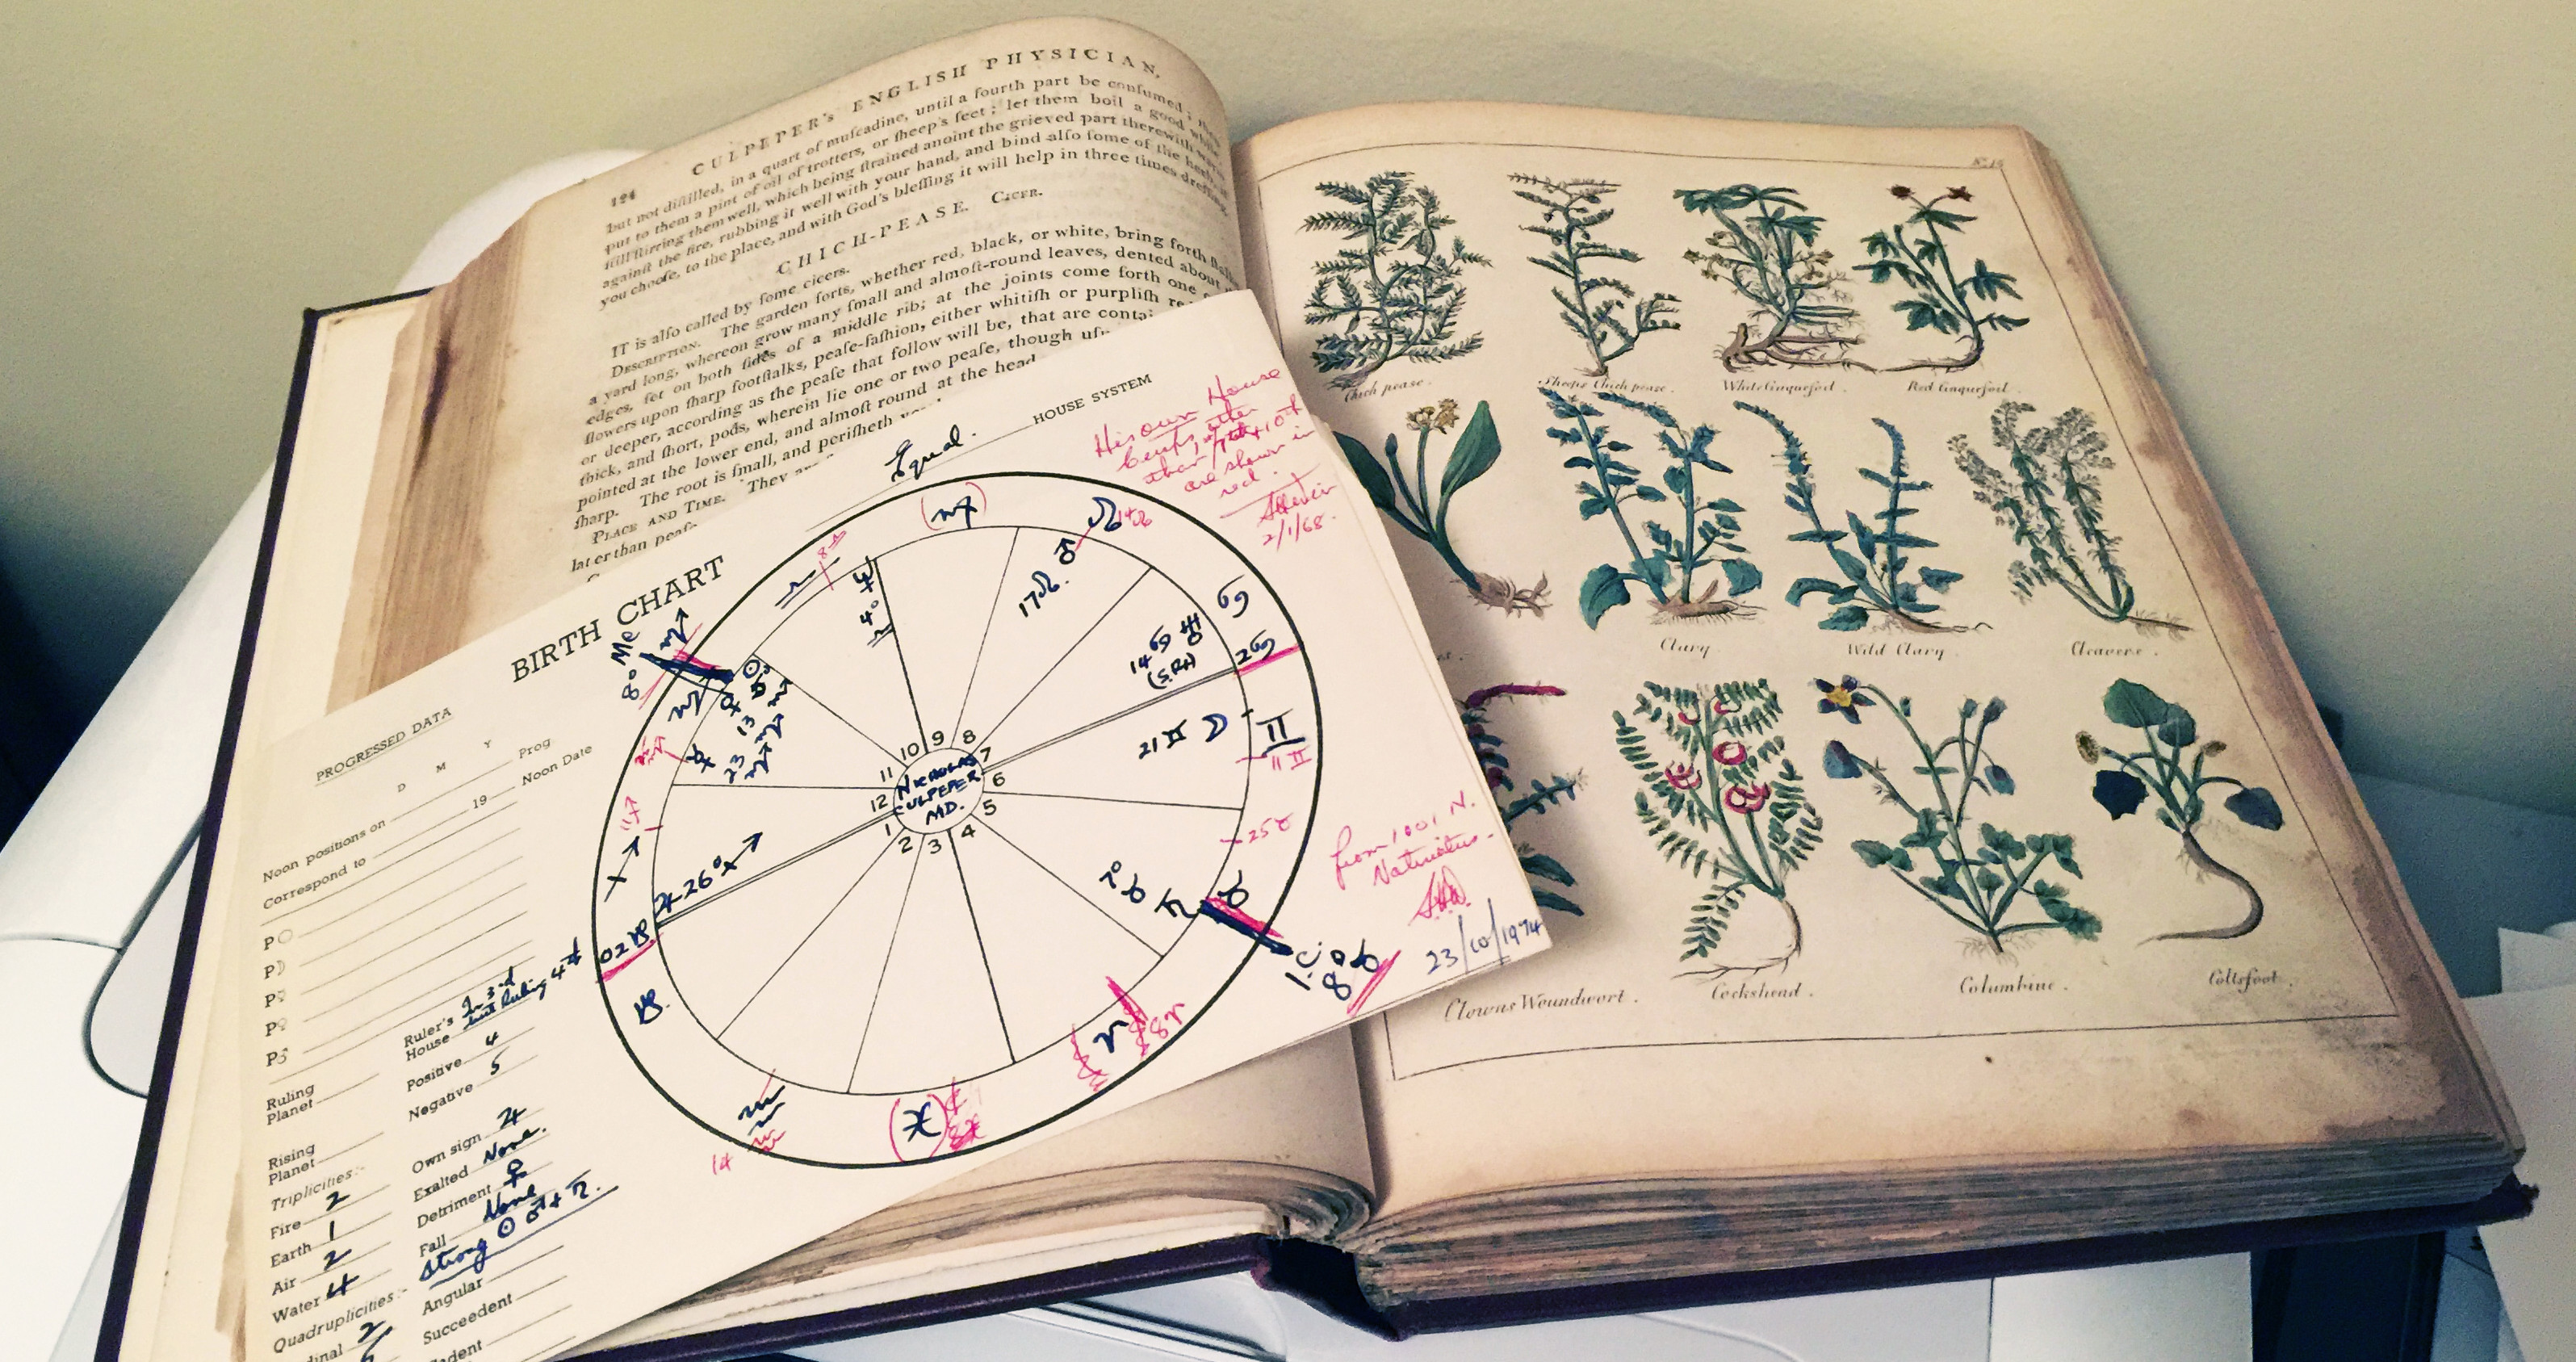 124
CULPEPER's ENGLISH PHYSICIAN,
but not distilled, in a quart of muſcadine, until a fourth part be conſumed;
put to them a pint of oil of trotters, or ſheep's feet; let them boil a good while
ſtill ſtirring them well, which being ſtrained anoint the grieved part therewith
againſt the fire, rubbing it well with your hand, and bind alſo ſome of the herb
you chooſe, to the place, and with God's bleſſing it will help in three times dreſſing.
CHICH-PEASE. CICER.
IT is alſo called by ſome cicers.
DESCRIPTION. The garden ſorts, whether red, black, or white, bring forth
a yard long, whereon grow many ſmall and almoſt-round leaves, dented about
edges, ſet on both ſides of a middle rib; at the joints come forth one
flowers upon ſharp footſtalks, peaſe-faſhion, either whitiſh or purpliſh
or deeper, according as the peaſe that follow will be, that are
thick, and ſhort, pods, wherein lie one or two peaſe, though
pointed at the lower end, and almoſt round at the head
ſharp. The root is ſmall, and periſheth
PLACE AND TIME. They
later than peaſe
Nº. 14
Chich pease.
Sheeps Chich pease.
White Cinquefoil.
Red Cinquefoil.
Clary
Wild Clary.
Cleavers.
Clowns Woundwort.
Cockshead.
Columbine.
Coltsfoot.
BIRTH CHART
Equal. HOUSE SYSTEM
His own House
cusps, other
than
are shown in
red
2/1/68.
(♍)
♌ 14♌
♂
17♌
♋
14♋ ♅
(S.R.)
2♋
21 ♊ ☽
♊
11 ♊
25♉
♉
2° ♉ ♄
I.C.
8° ♉
♈ 8♈
(♓)
♒
14 ♒
♑
02♑
♃ 26° ♐
♐
♏
8° Mc ♏
☉
♀
13 ♏
☿
23 ♏
♆
4° ♎
♎
8♎
10 9 8
11 7
12 6
1 5
2 3 4
NICHOLAS
CULPEPER
MD.
from 1001 N.
Nativities.
23/10/1974
PROGRESSED DATA
D M Y
Noon positions on 19 Prog
Correspond to Noon Date
P☉
P☽
P☿
P♀
P♂
Ruling
Planet
Rising
Planet
Triplicities:-
Fire 2
Earth 1
Air 2
Water 4
Quadruplicities:-
2
Ruler's In 3rd
House but Ruling 4th
Positive 4
Negative 5
Own sign ♃
Exalted None.
Detriment ♀
Fall None
Strong ☉ ♂ + ♄.
Angular
Succedent